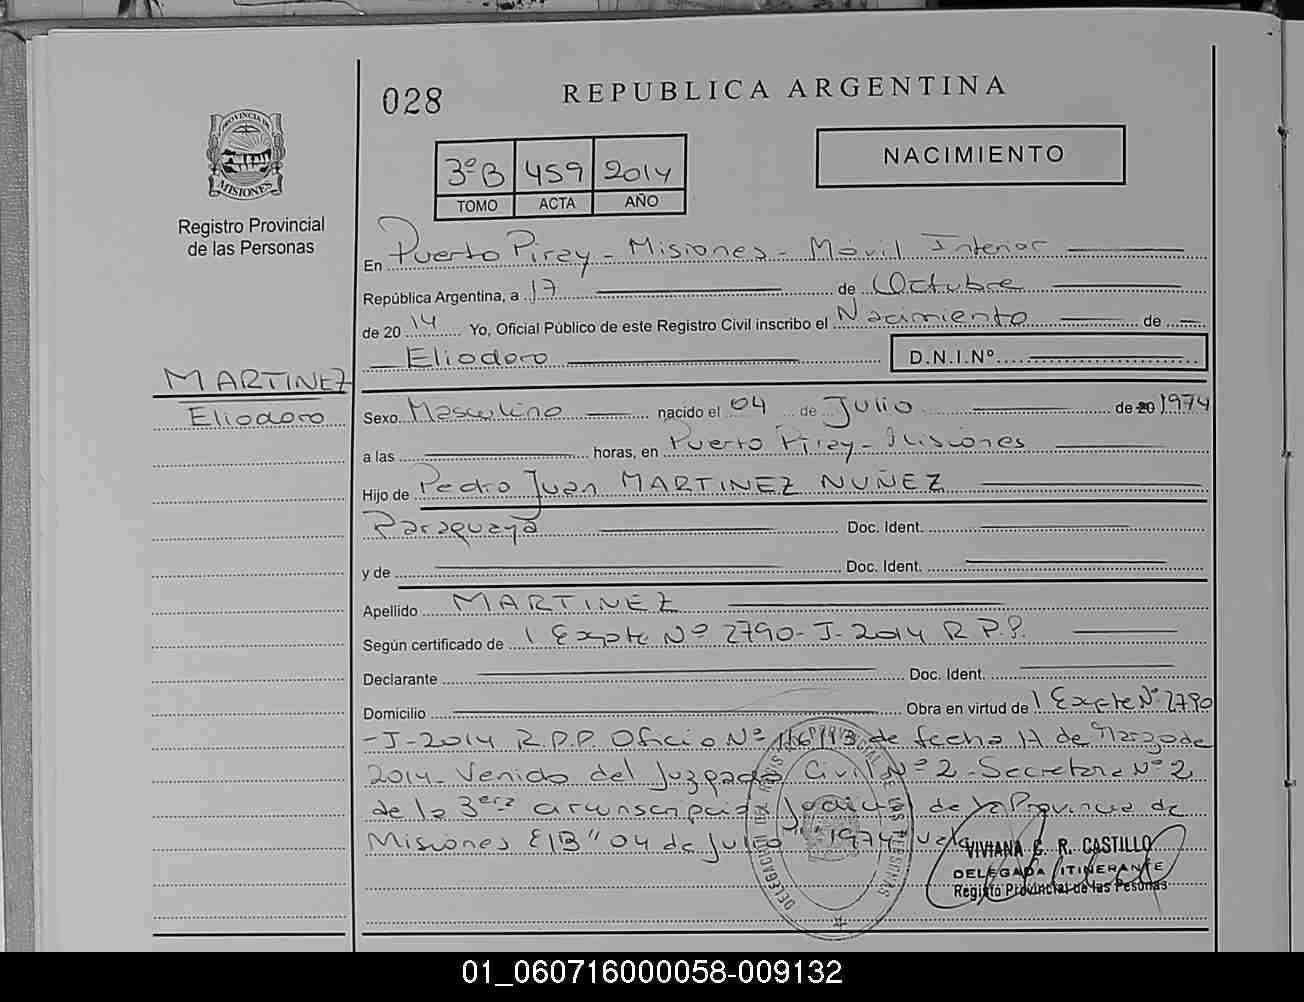 028
REPUBLICA ARGENTINA
PROVINCIA DE
MISIONES
Registro Provincial
de las Personas
3ºB 459 2014
TOMO ACTA AÑO
NACIMIENTO
En Puerto Piray - Misiones - Móvil Interior
República Argentina, a 17 de Octubre
de 20 14 Yo, Oficial Público de este Registro Civil inscribo el Nacimiento de
Eliodoro D.N.I.Nº
MARTINEZ
Eliodoro
Sexo Masculino nacido el 04 de Julio de 20 1974
a las horas, en Puerto Piray - Misiones
Hijo de Pedro Juan MARTINEZ NUÑEZ
Paraguaya Doc. Ident.
y de Doc. Ident.
Apellido MARTINEZ
Según certificado de Expte Nº 2790-J-2014 R.P.P.
Declarante Doc. Ident.
Domicilio Obra en virtud de Expte Nº 2790
-J-2014 R.P.P. Oficio Nº de fecha de Marzo de
2014 - Venido del Juzgado Civil Nº 2 - Secretaria Nº 2
de la 3era circunscripción Judicial de la Provincia de
Misiones E/B " 04 de Julio 1974 " Vale
VIVIANA E. R. CASTILLO
DELEGADA ITINERANTE
Registro Provincial de las Pesonas
01_060716000058-009132